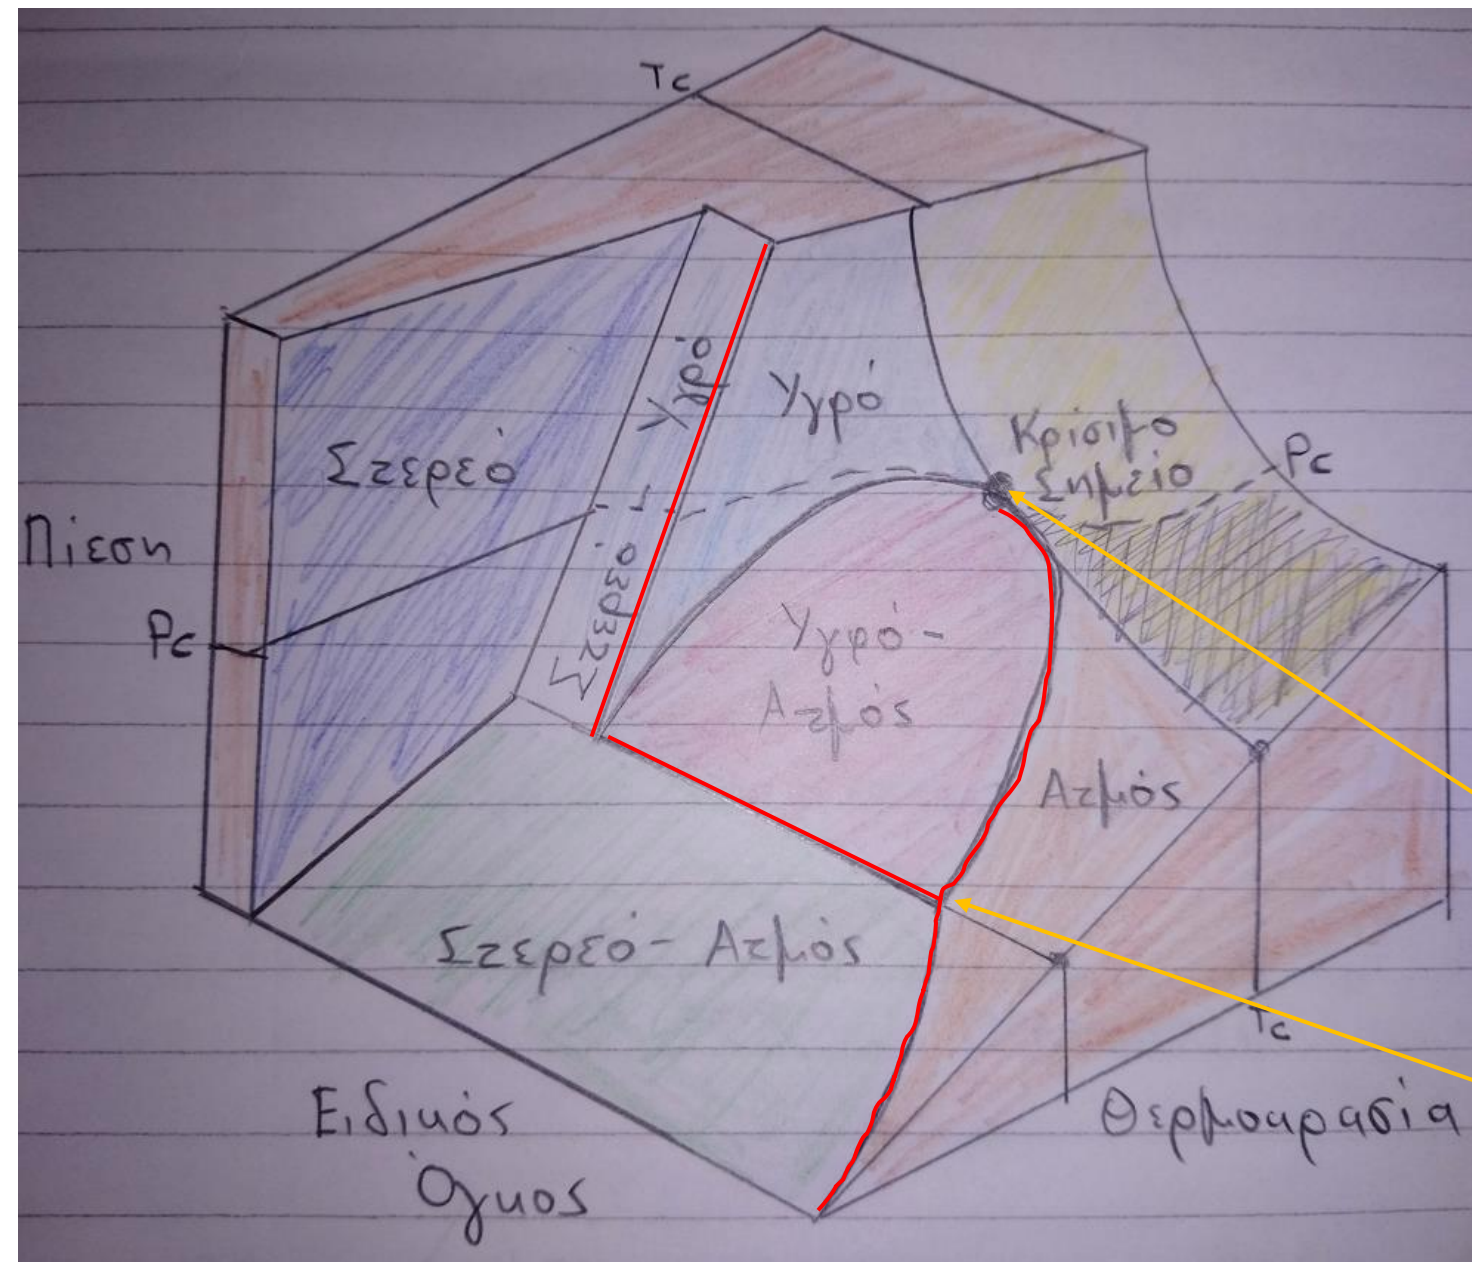 Tc
Υγρό
Υγρό
Κρίσιμο
Σημείο
Pc
Στερεό
Πίεση
Στερεό
Pc
Υγρό -
Ατμός
Ατμός
Στερεό - Ατμός
Tc
Ειδικός
Όγκος
Θερμοκρασία